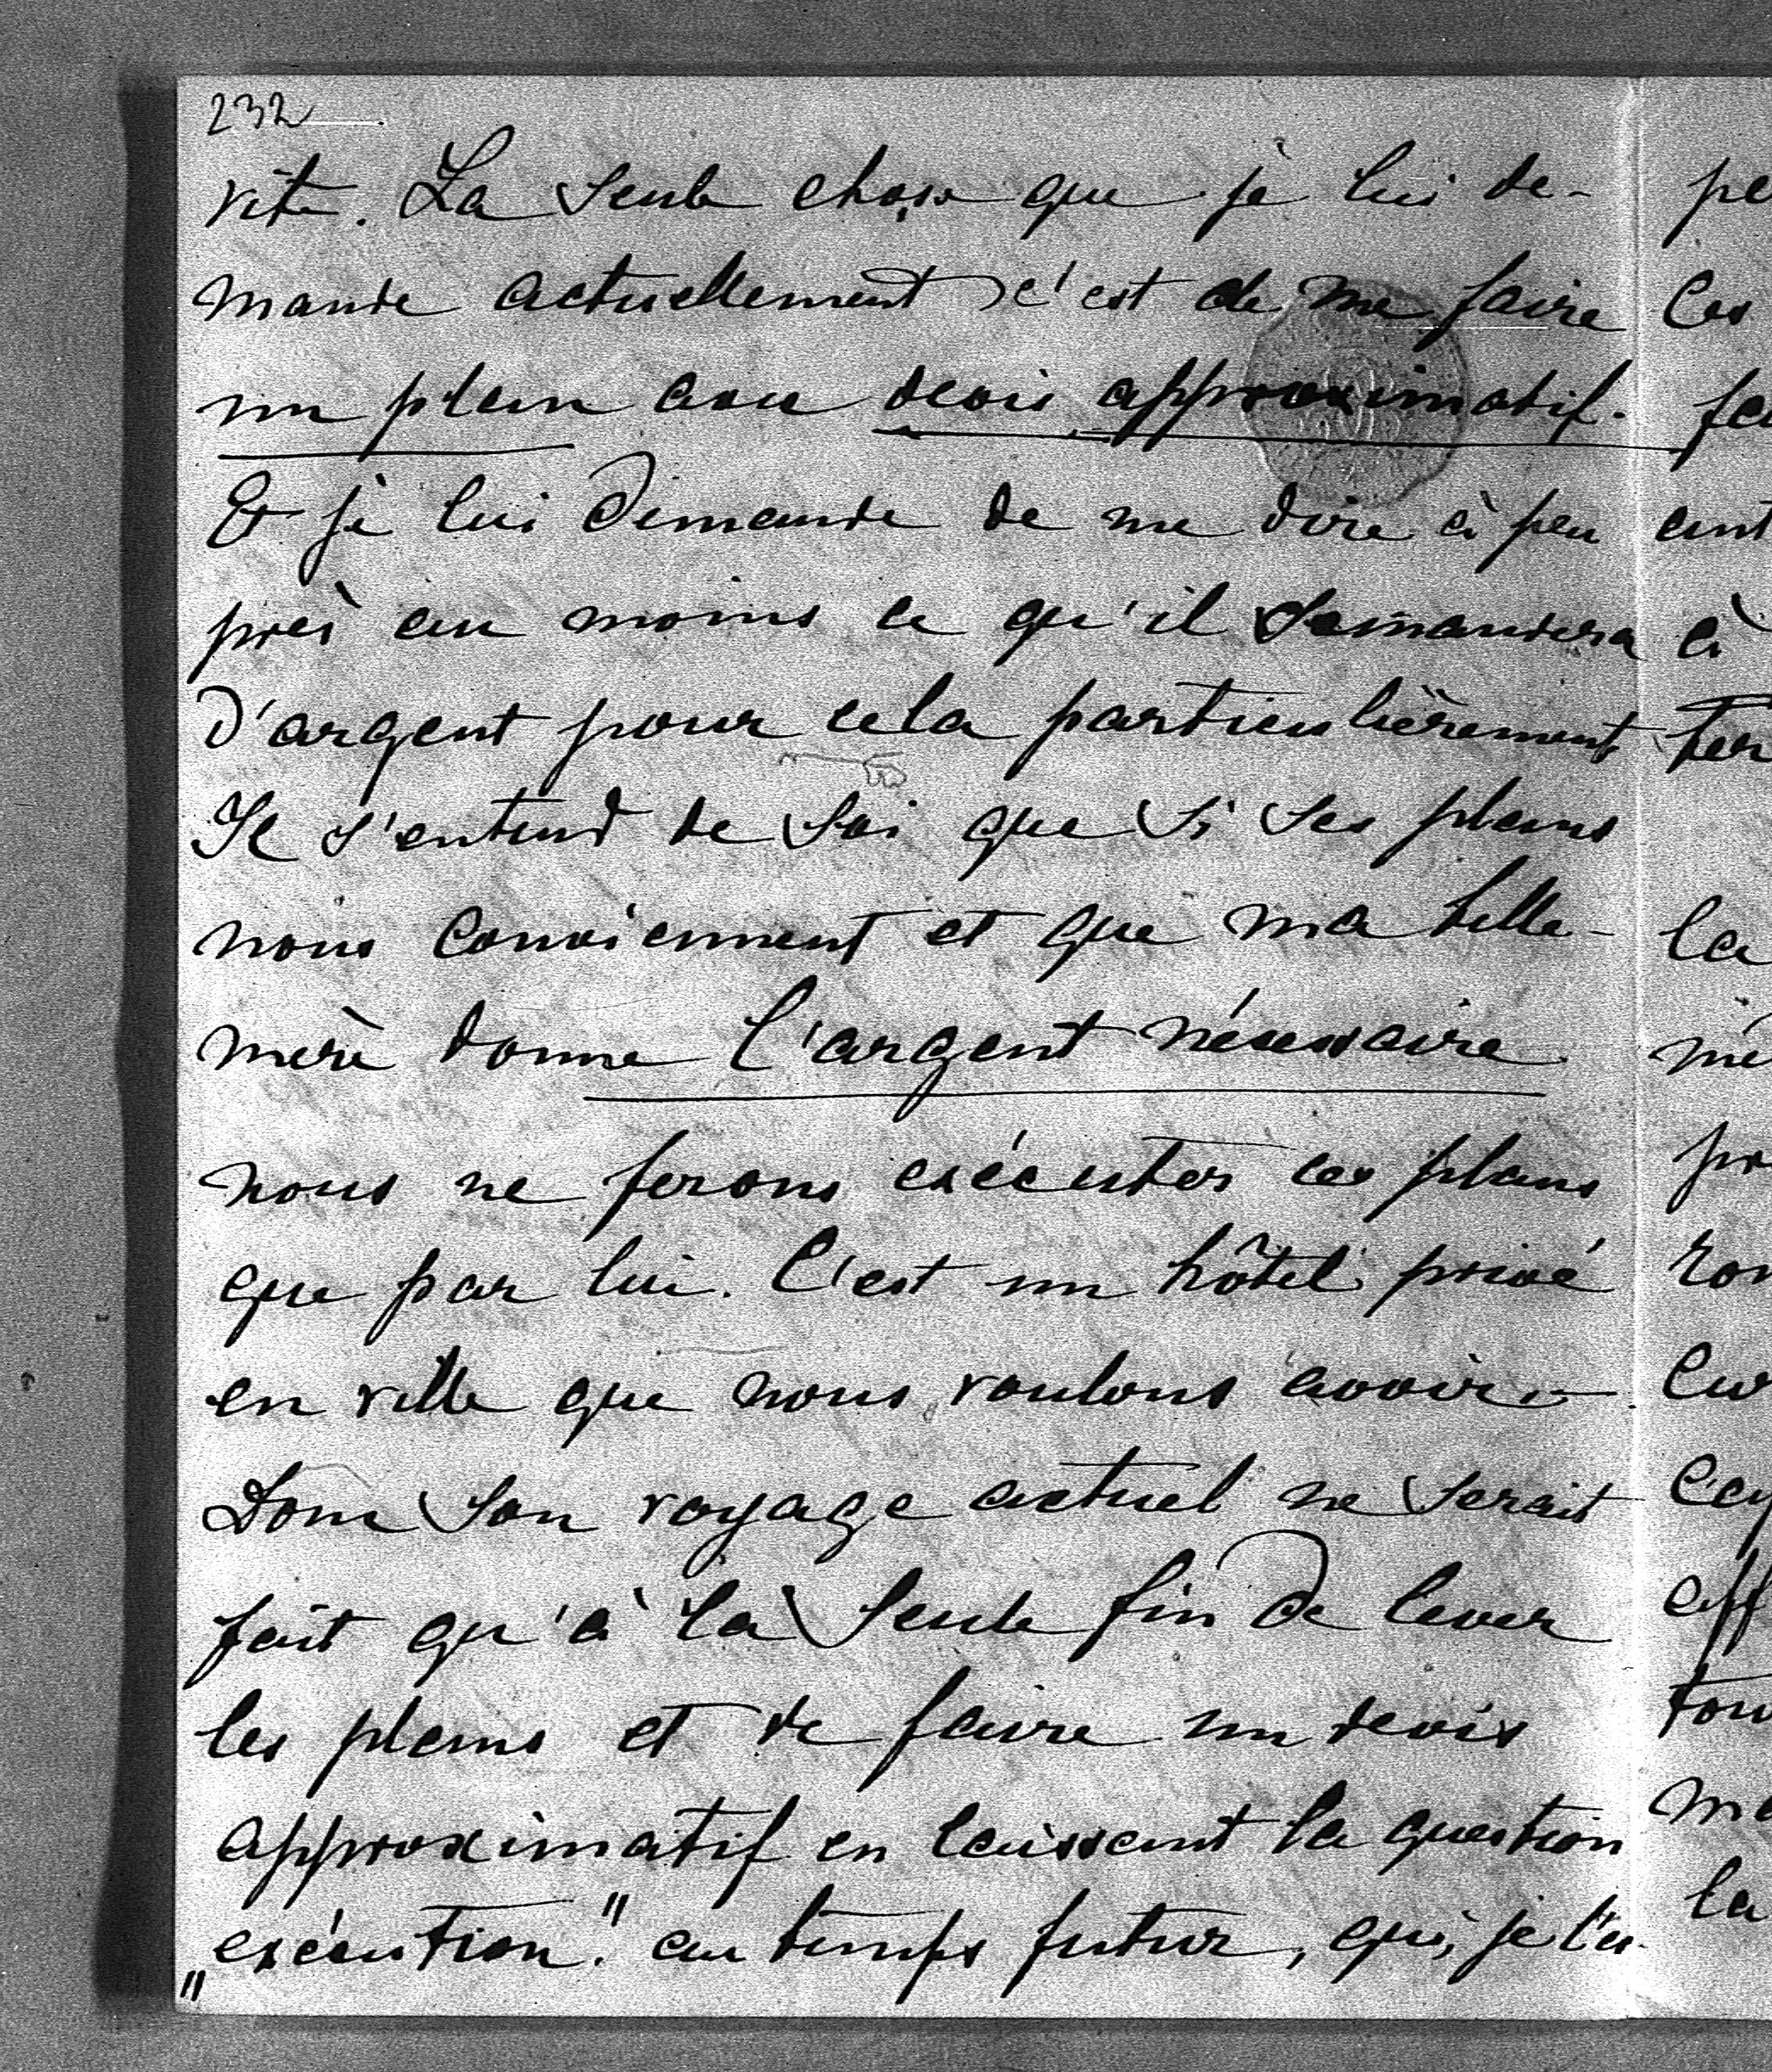 232
vite. La seule chose que je lui de-
mande actuellement c'est de me faire
un plan avec devis approximatif.
Et je lui demande de me dire à peu
près au moins ce qu'il demandera
d'argent pour cela particulièrement
Il s'entend de soi que si ses plans
nous conviennent et que ma belle-
mère donne l'argent nécessaire
nous ne ferons exécuter ces plans
que par lui. C'est un hôtel privé
en ville que nous voulons avoir. —
Donc son voyage actuel ne serait
fait qu'à la seule fin de lever
les plans et de faire un devis
approximatif en laissant la question
„exécution." au temps futur, qui, je l'es-